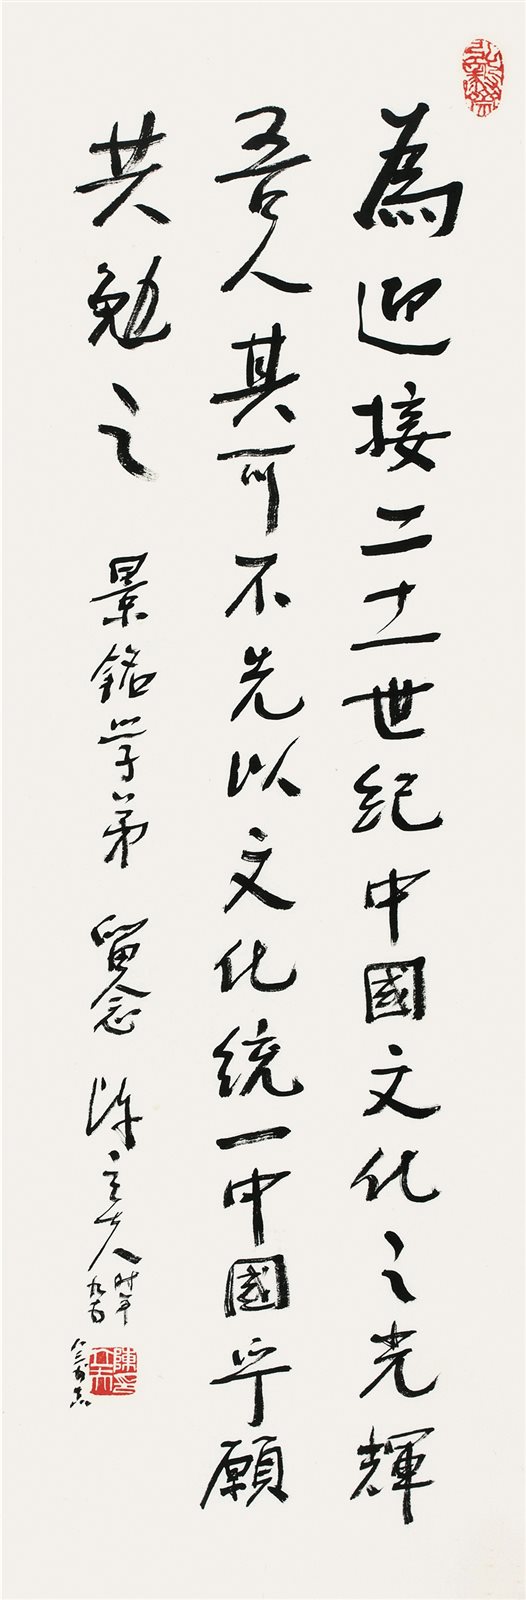 為迎接二十一世紀中國文化之光輝
吾人其可不先以文化統一中國乎願
共勉之 景銘学弟 留念 陳立夫 时年